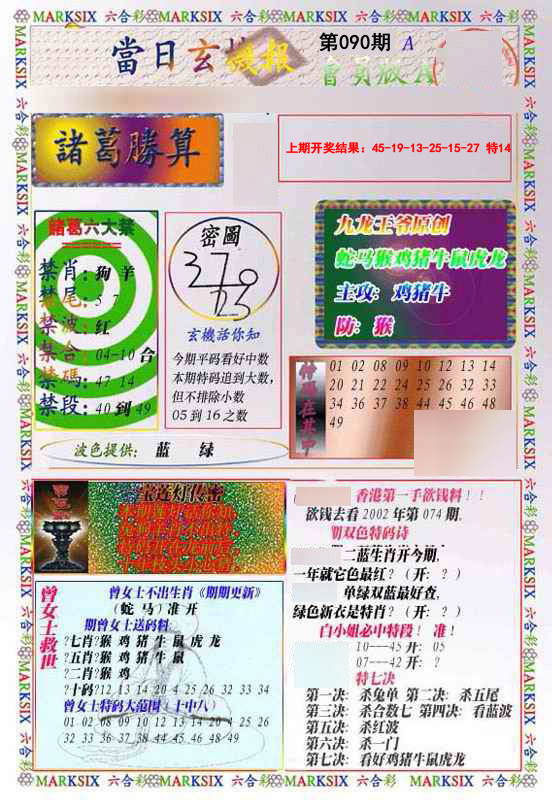 MARKSIX 六合彩 MARKSIX 六合彩 MARKSIX 六合彩 MARKSIX 六合彩 MARKSIX
當日玄機报
第090期 A
會員版A
諸葛勝算
上期开奖结果：45-19-13-25-15-27 特14
諸葛六大禁
禁肖：狗 羊
禁尾：5 7
禁波：红
禁合：04-10 合
禁碼：47 14
禁段：40 到 49
密圖
玄機話你知
今期平码看好中数
本期特码追到大数，
但不排除小数
05 到 16 之数
九龙王爷原创
蛇马猴鸡猪牛鼠虎龙
主攻：鸡猪牛
防：猴
特碼在其中
01 02 08 09 10 12 13 14
20 21 22 24 25 26 32 33
34 36 37 38 44 45 46 48
49
波色提供： 蓝 绿
宝莲灯传密
曾女士救世
曾女士不出生肖《期期更新》
（蛇 马）准 开
期曾女士送码料
?七肖?猴 鸡 猪 牛 鼠 虎 龙
?五肖?猴 鸡 猪 牛 鼠
?二肖?猴 鸡
?十码?12 13 14 20 4 25 26 32 33 34
曾女士特码大范围（十中八）
01 02 08 09 10 12 13 14 20 4 25 26
32 33 36 37 38 44 45 46 48 49
香港第一手欲钱料！！
欲钱去看 2002 年第 074 期，
期双色特码诗
二蓝生肖开今期，
一年就它色最红？（开：？）
单绿双蓝最好查，
绿色新衣是特肖？（开：？）
白小姐必中特段！准！
10---45 开：05
07---42 开：？
特七决
第一决：杀兔单 第二决：杀五尾
第三决：杀合数七 第四决：看蓝波
第五决：杀红波
第六决：杀一门
第七决：看好鸡猪牛鼠虎龙
MARKSIX 六合彩 MARKSIX 六合彩 MARKSIX 六合彩 MARKSIX 六合彩 MARKSIX